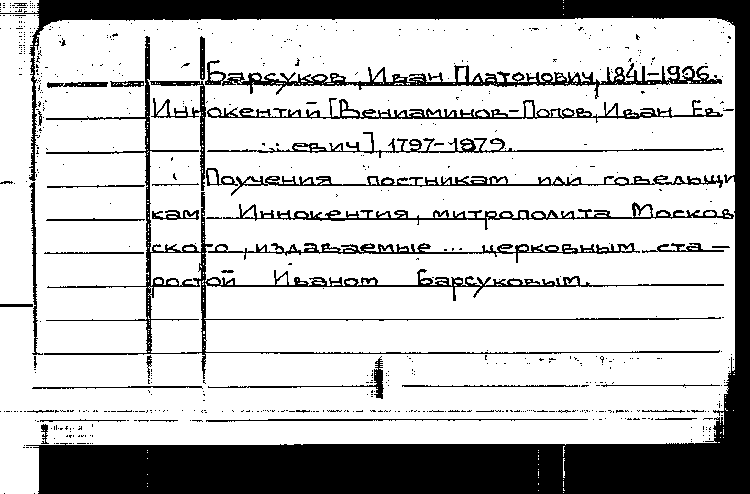 Барсуков, Иван Платонович, 1841-1906.
Иннокентий [Вениаминов-Попов, Иван Ев-
евич], 1797-1879.
Поучения постникам или говельщи
кам Иннокентия, митрополита Москов
ского, издаваемые ... церковным ста-
ростой Иваном Барсуковым.